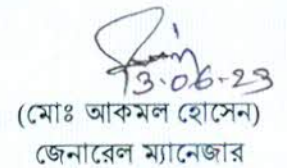 13.06.23
(মোঃ আকমল হোসেন)
জেনারেল ম্যানেজার